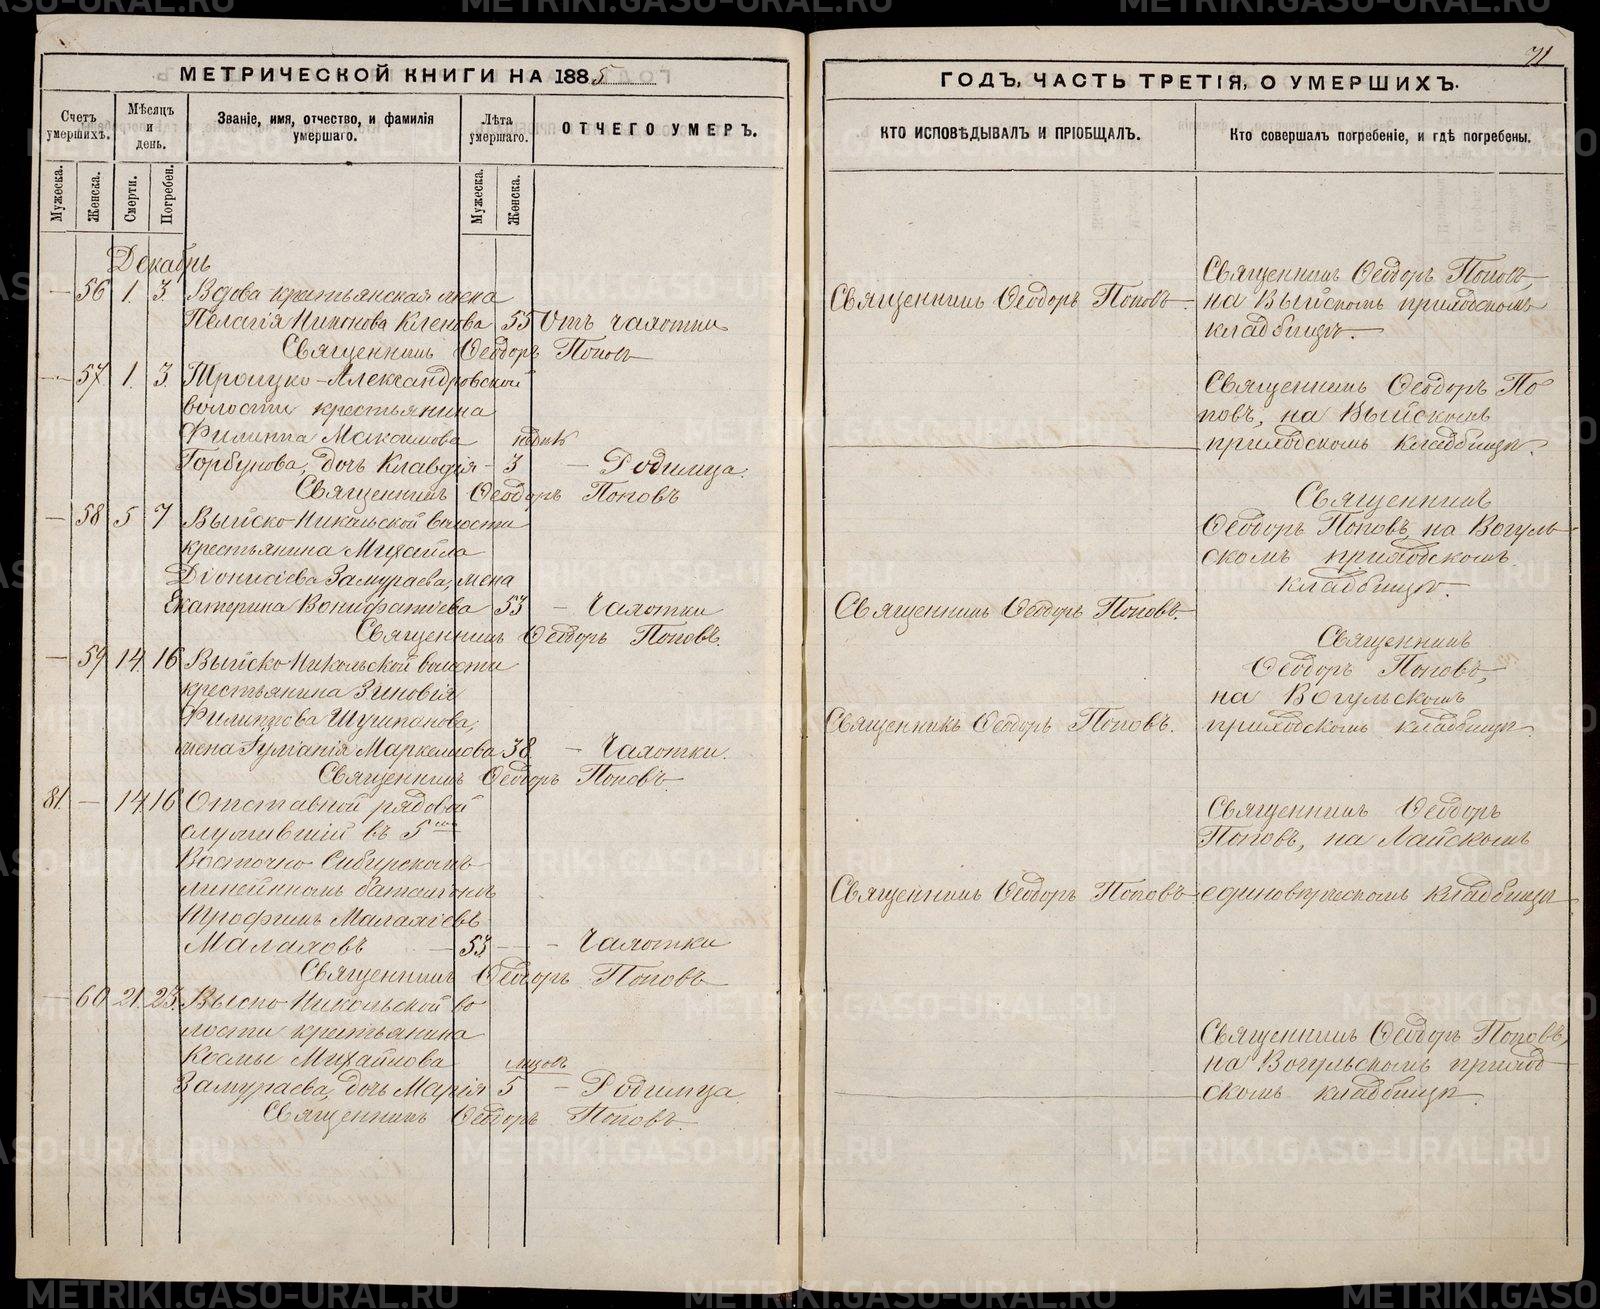 МЕТРИЧЕСКОЙ КНИГИ НА 1885
Счетъ умершихъ.
Мѣсяцъ и день.
Званіе, имя, отчество, и фамилія умершаго.
Лѣта умершаго.
ОТЧЕГО УМЕРЪ.
Мужеска.
Женска.
Смерти.
Погребен.
Мужеска.
Женска.
Декабрь
— 56 1. 3. Вдова крестьянская жена
Пелагія Никонова Кленова 55 Отъ чахотки
Священникъ Ѳеодоръ Поповъ
— 57 1. 3. Троицко-Александровской
волости крестьянина
Филиппа Максимова
Горбунова, дочь Клавдія - 3 — Родимца.
Священникъ Ѳеодоръ Поповъ
— 58 5 7 Выйско-Никольской волости
крестьянина Михайла
Діонисіева Замураева, жена
Екатерина Вонифатіева 53 — Чахотки
Священникъ Ѳеодоръ Поповъ.
— 59 14. 16 Выйско-Никольской волости
крестьянина Зиновія
Филиппова Шушпанова,
жена Маркелова 38 — Чахотки.
Священникъ Ѳеодоръ Поповъ.
81. — 14 16 Отставной рядовой
служившій въ 5мъ
Восточно-Сибирскомъ
линейномъ баталіонѣ
Трофимъ Малахіевъ
Малаховъ — 53 — — Чахотки
Священникъ Ѳеодоръ Поповъ
— 60 21. 23. Выйско-Никольской во
лости крестьянина
Космы Михайлова
Замураева, дочь Марія 5 — Родимца
Священникъ Ѳеодоръ Поповъ.
71
ГОДЪ, ЧАСТЬ ТРЕТІЯ, О УМЕРШИХЪ.
КТО ИСПОВѢДЫВАЛЪ И ПРІОБЩАЛЪ.
Кто совершалъ погребеніе, и гдѣ погребены.
Священникъ Ѳеодоръ Поповъ.
Священникъ Ѳеодоръ Поповъ,
на Выйскомъ приходскомъ
кладбищѣ.
Священникъ Ѳеодоръ По
повъ, на Выйскомъ
приходскомъ кладбищѣ.
Священникъ
Ѳеодоръ Поповъ, на Вогуль-
скомъ приходскомъ
кладбищѣ.
Священникъ Ѳеодоръ Поповъ.
Священникъ
Ѳеодоръ Поповъ,
на Вогульскомъ
приходскомъ кладбищѣ.
Священникъ Ѳеодоръ Поповъ.
Священникъ Ѳеодоръ
Поповъ, на Лайскомъ
единовѣрческомъ кладбищѣ
Священникъ Ѳеодоръ Поповъ
Священникъ Ѳеодоръ Поповъ,
на Вогульскомъ приход-
скомъ кладбищѣ.
METRIKI.GASO-URAL.RU